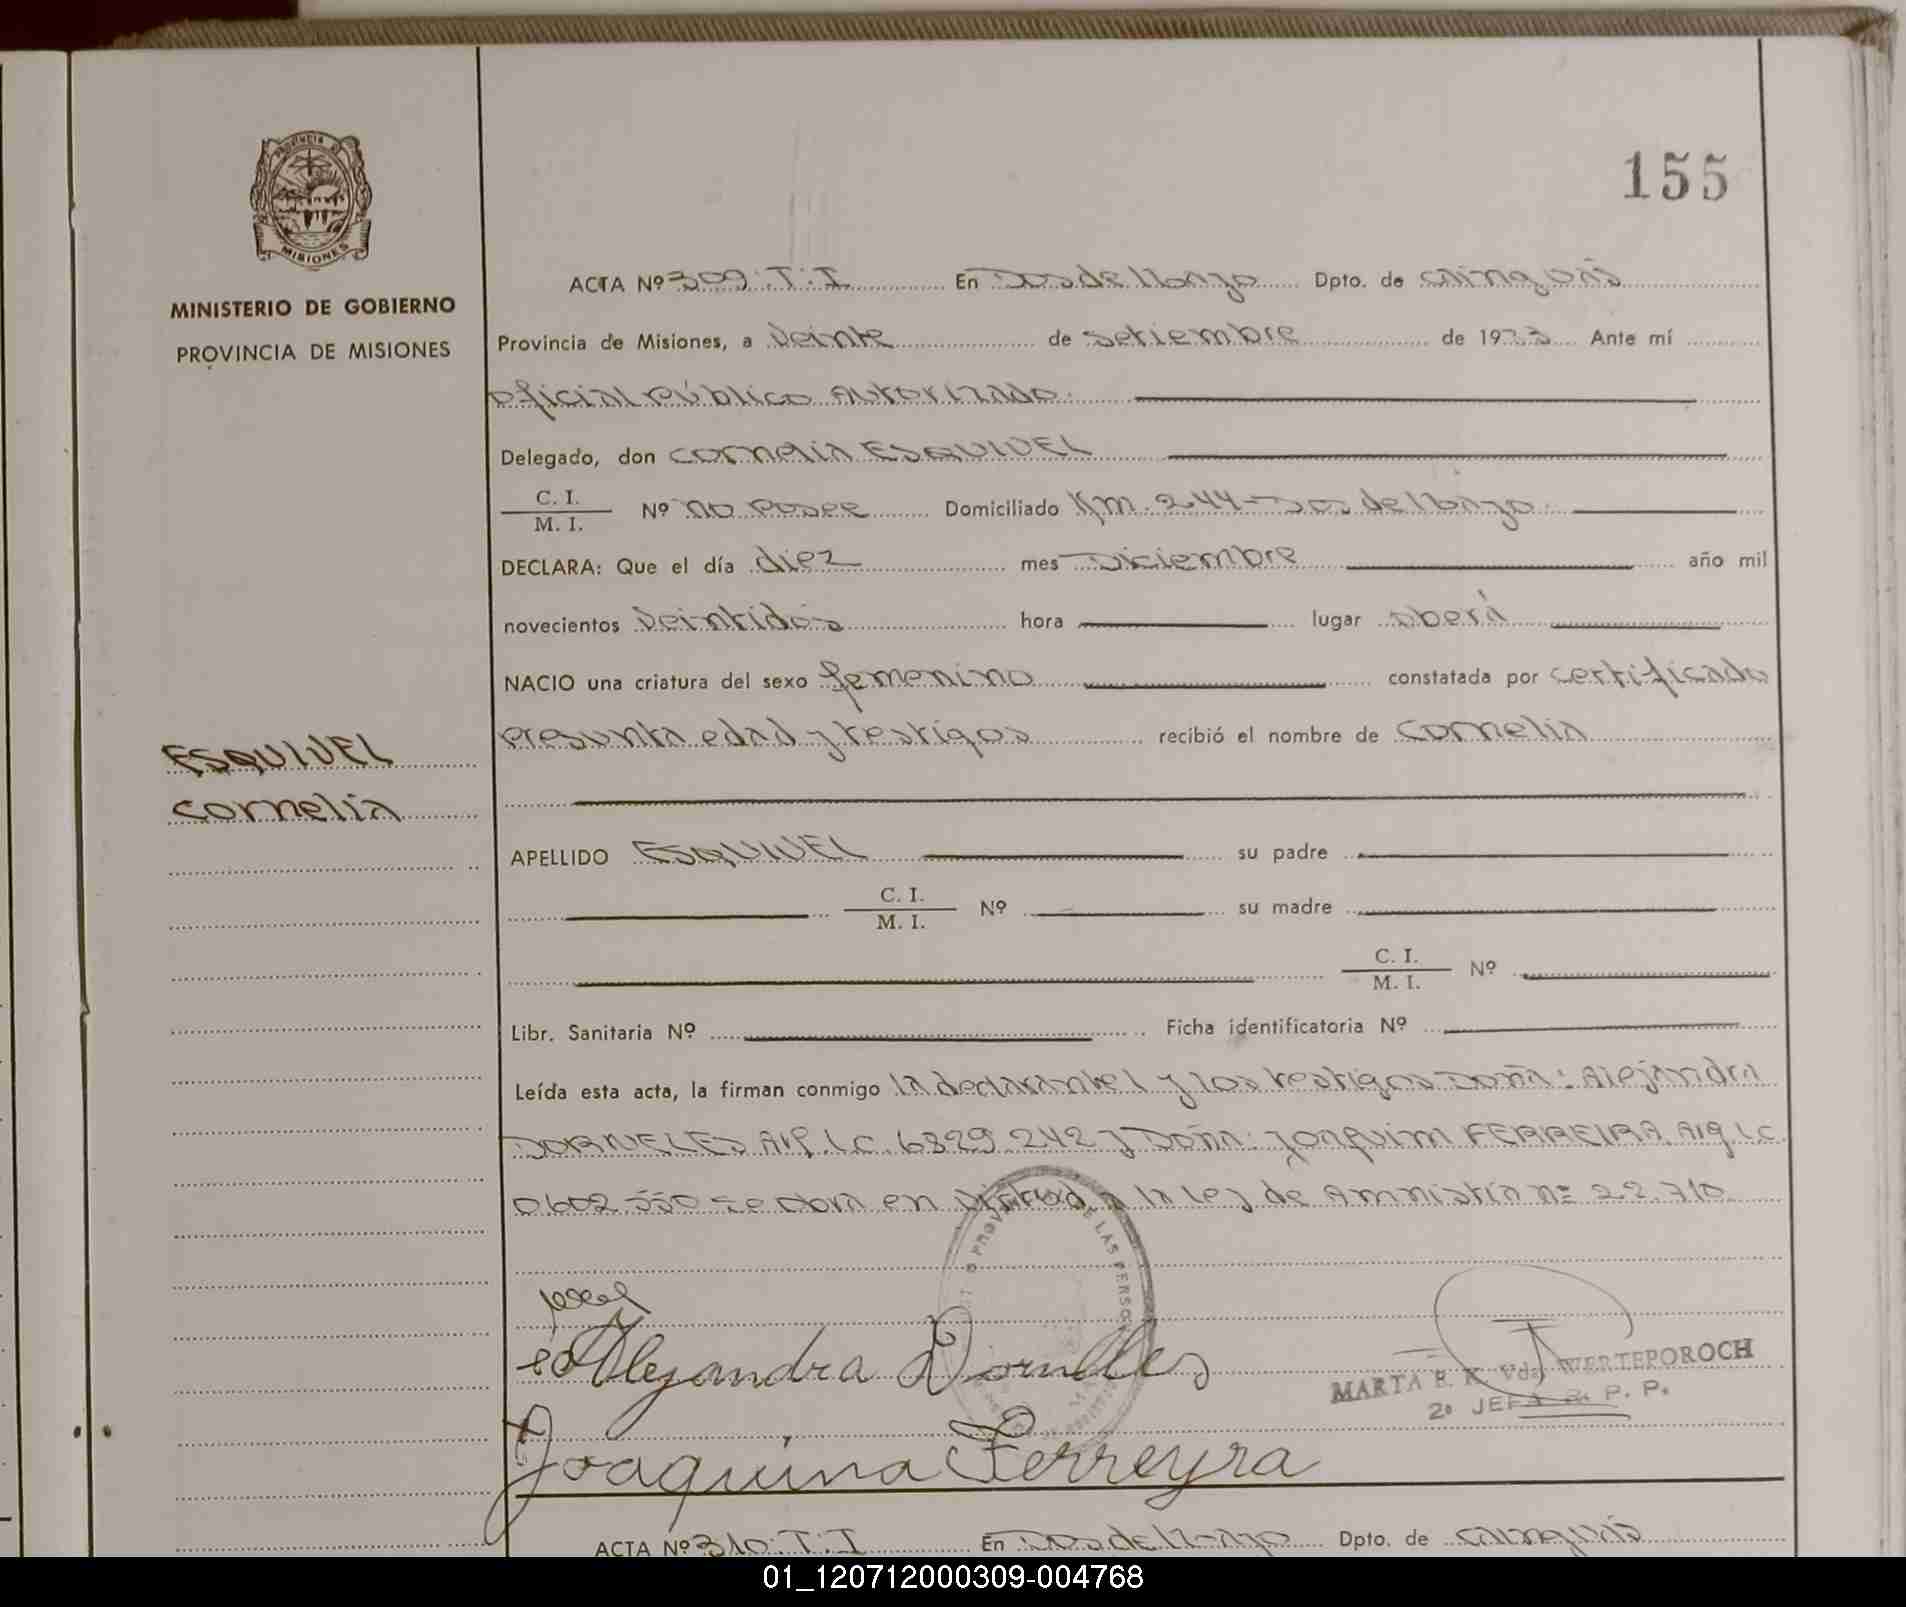 155
PROVINCIA DE
MISIONES
MINISTERIO DE GOBIERNO
PROVINCIA DE MISIONES
ACTA Nº 309. T. I En Dos de Mayo Dpto. de cainguás
Provincia de Misiones, a Veinte de setiembre de 1983 Ante mí
oficial Público Autorizado.
Delegado, don cornelia ESQUIVEL
C. I.
M. I. Nº no Posee Domiciliado Km. 244-Dos de Mayo.
DECLARA: Que el día diez mes Diciembre año mil
novecientos Veintidós hora lugar oberá
NACIO una criatura del sexo femenino constatada por certificado
presunta edad y testigos recibió el nombre de cornelia
ESQUIVEL
cornelia
APELLIDO ESQUIVEL su padre
C. I.
M. I. Nº su madre
C. I.
M. I. Nº
Libr. Sanitaria Nº Ficha identificatoria Nº
Leída esta acta, la firman conmigo la declarante y los testigos Doña: Alejandra
DORNELES Arg. L.C. 6829.242 y Doña: JOAQUIM FERREIRA. Arg. L.C
0602.550 se obra en virtud a la Ley de Amnistía nº 22.710
Alejandra Dornelles
Joaquina Ferreyra
MARTA E. K. Vda. WERTEPOROCH
2º JEFA R. P. P.
ACTA Nº 310. T. I En Dos de Mayo Dpto. de cainguás
01_120712000309-004768